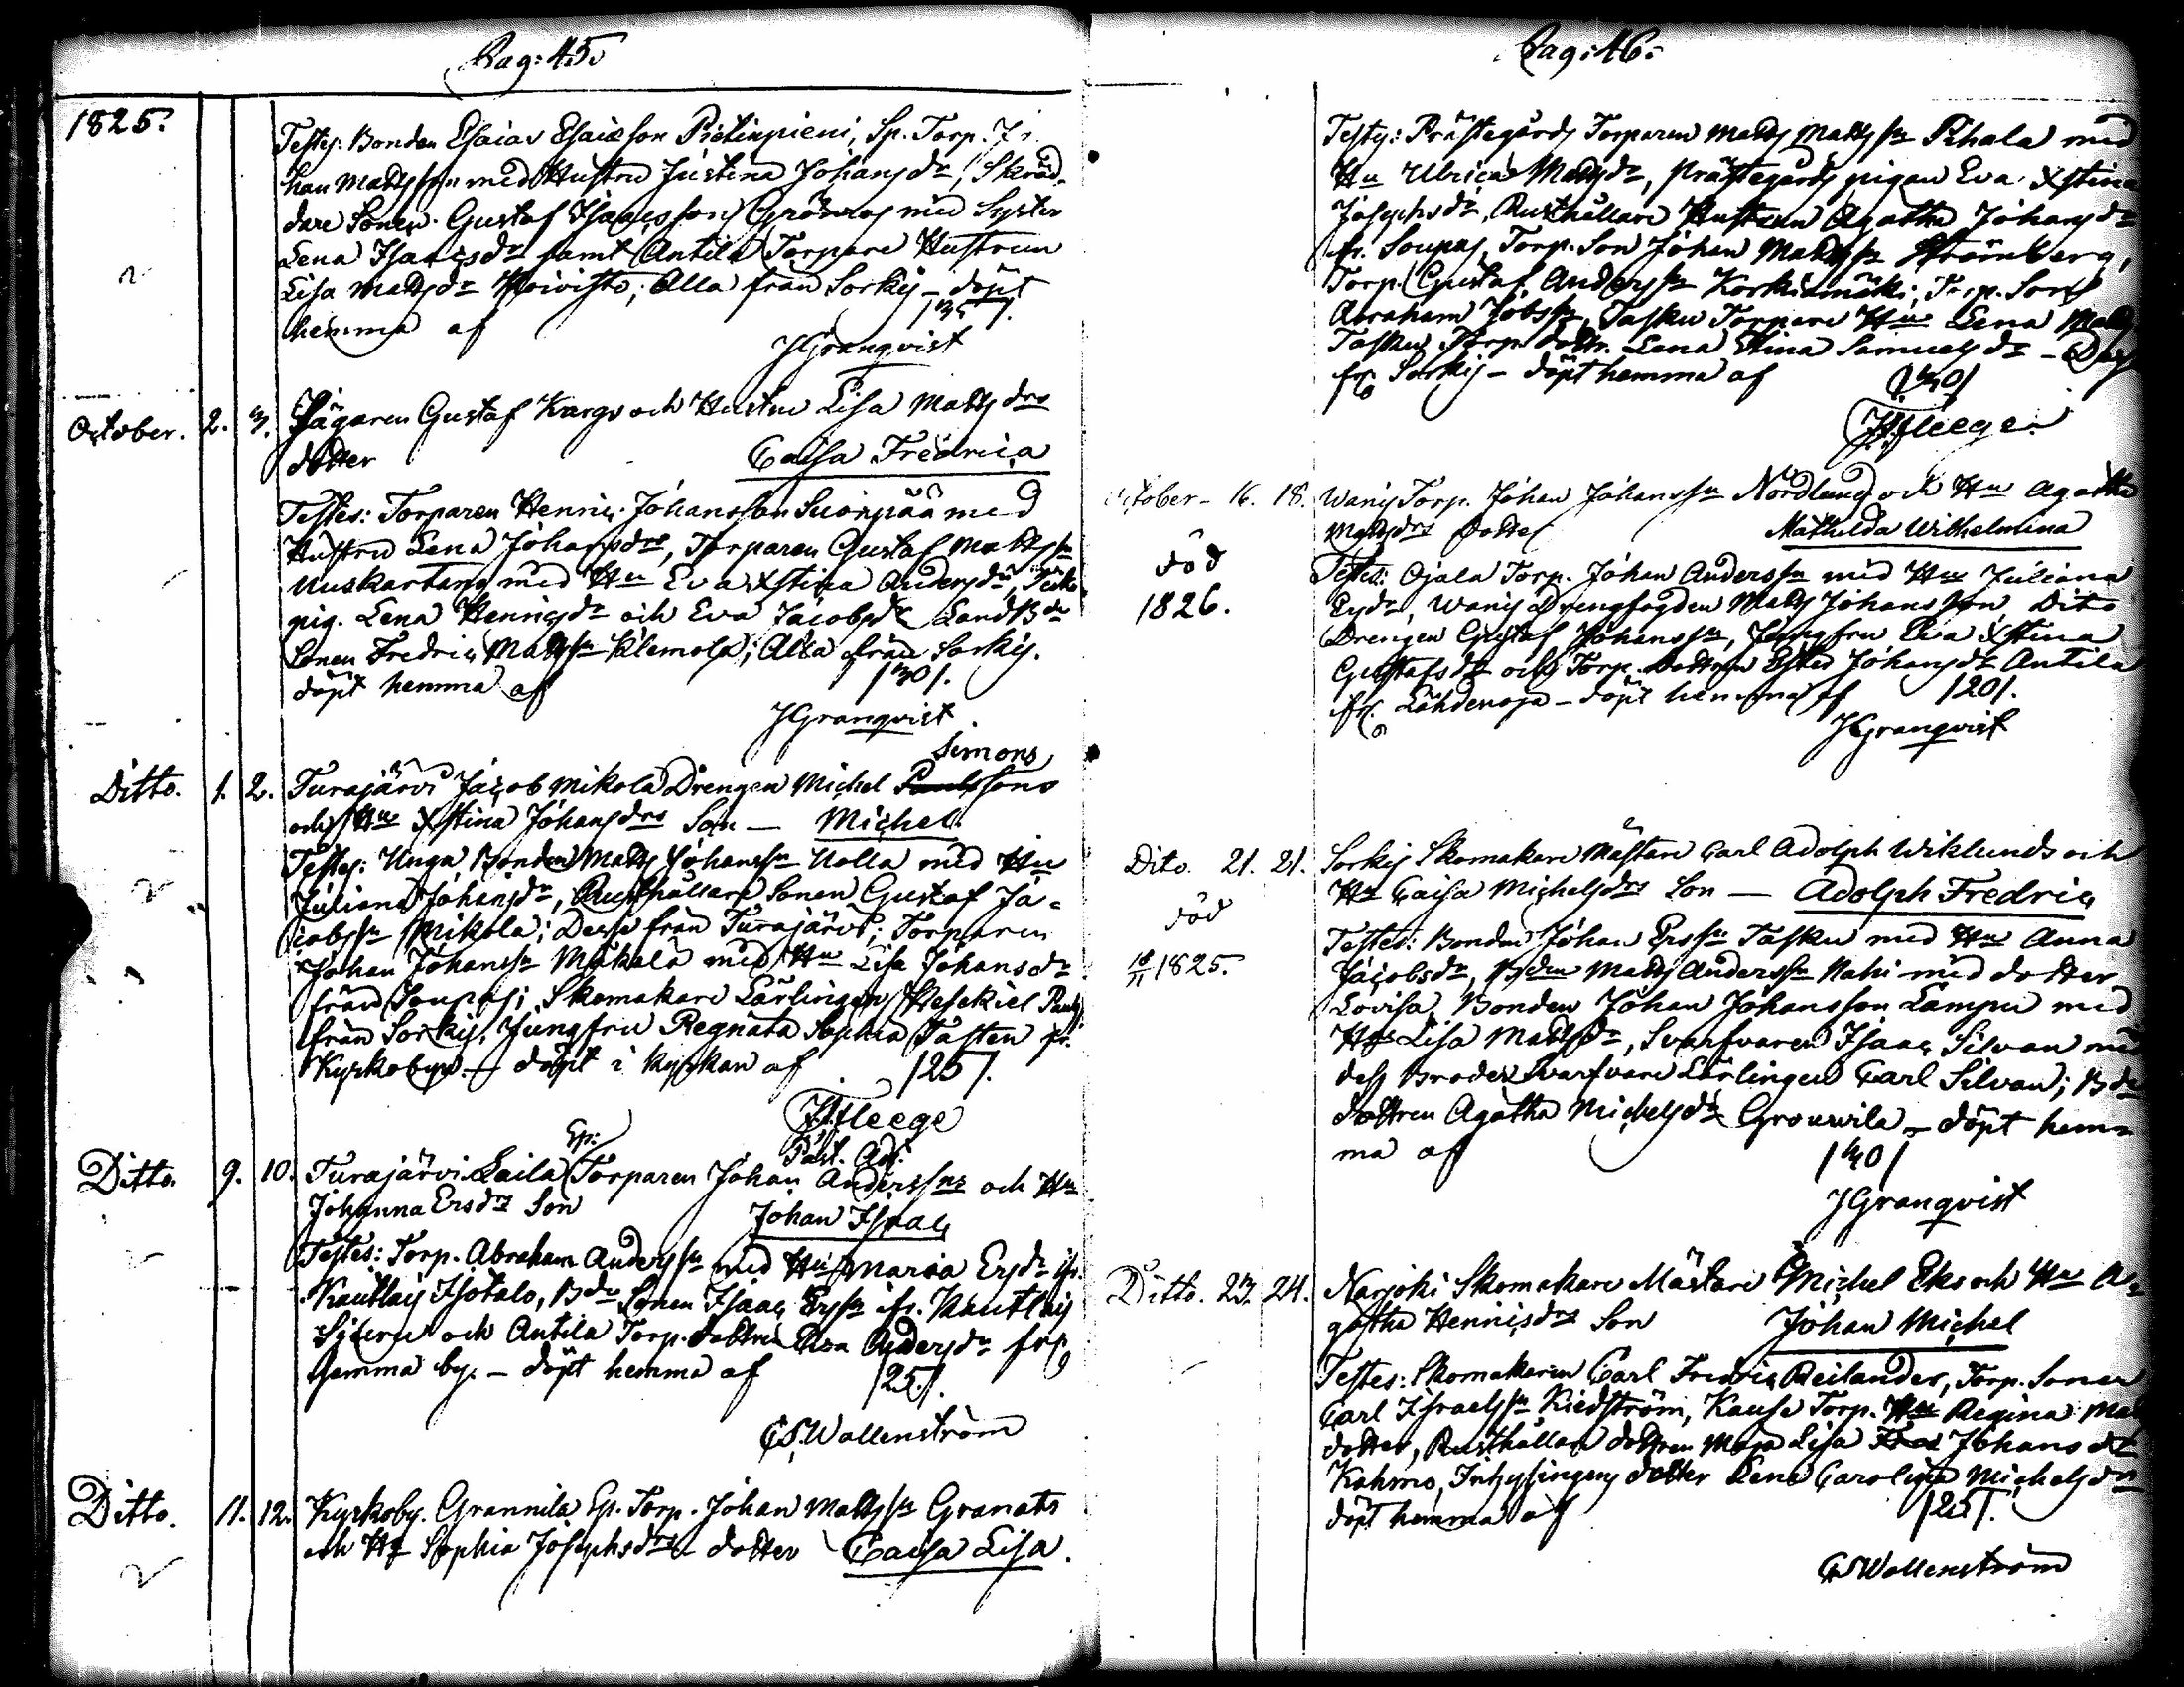 Pag: 45.
1825.
Testes: Bonden Esaias Esaiæson Pietinpieni, Sp. Torp. Jo
han Mattsson med Hustru Justina Johansdr, Skräd-
dare Sonen Gustaf Isaacsson Grönroos med Syster
Lena Isaacsdr samt Antila Torpare Hustrun
Lisa Mattsdr Koivisto; Alla från Sorkis – döpt
hemma af /35/.
JGranqvist
October. 2. 3. Jägaren Gustaf Kargs och Hustru Lisa Mattsdrs
dotter Caisa Fredrica
Testes: Torparen Henric Johansson Suonpää med
Hustru Lena Johansdr, Torparen Gustaf Mattssn
Uuskartano med Hu Eva Xstina Andersdr,
pig. Lena Henricsdr och Eva Jacobsdr Landbde
Sonen Fredric Mattssn Klemola; Alla från Sorkis.
döpt hemma af /30/.
JGranqvist
Simons
Ditto. 1. 2. Turajärvi Jacob Mikola Drengen Michel Paulssons
och Hu Xstina Johansdrs Son — Michel.
Testes: Unga Bonden Matts Johanssn Uolla med Hu
Juliana Johansdr, Rusthållare Sonen Gustaf Ja-
cobssn Mikola; Desse från Turajärvi; Torparen
Johan Johanssn Mäkelä med Hu Lisa Johansdr
från Soupas; Skomakare Lärlingen Hesekiel Pauls
från Sorkis, Jungfru Regnata Sophia Fasten fr.
Kyrkobyn. – döpt i kyrkan af /25/.
Past. Adj.
Ditto. 9. 10. Turajärvi Laila Sp: Torparen Johan Anderssns och Hu
Johanna Ersdrs Son Johan Isaac
Testes: Torp. Abraham Anderssn med Hu Maria Ersdr fr.
Kauttais Isotalo, Bde Sonen Isaac Erssn fr. Kauttais
och Antila Torp. dottren Andersdr fr.
samma by. – döpt hemma af /25/.
CSWallenström
Ditto. 11. 12. Kyrkoby. Grannila Sp. Torp. Johan Mattssn Granats
och Hu Sophia Josephsdrs dotter Caisa Lisa.
Pag: 46.
Testes: Prästegårds Torparen Matts Mattssn Pihala med
Hu Ulrica Mattsdr, Prästegårds pigan Eva Xstina
Josephsdr, Rusthållare Hustrun Agatha Johansdr
fr. Soupas, Torp. Son Johan Mattssn Strömberg,
Torp. Gustaf Anderssn Korkiamäki, Torp. Son
Abraham Jobssn, Tasku Torpare Hu Lena Matts
Tasku Torp. dottr. Lena Stina Samuelsdr –
fr. Sorkis – döpt hemma af /40/
October – 16. 18. Wanis Torp. Johan Johanssn Nordlund och Hu Agatha
Mattsdrs Dotter Mathilda Wilhelmina
död
1826.
Testes: Ojala Torp. Johan Anderssn med Hu Juliana
Ersdr, Wanis Drengfogden Matts Johansson Dito
Drengen Gustaf Johanssn, Jungfru Eva Xstina
Gustafsdr och Torp. Dottren Ester Johansdr Antila
fr. Lähdenoja – döpt hemma af /20/.
JGranqvist
Dito. 21. 21. Sorkis Skomakare Mästare Carl Adolph Wiklunds och
Hu Caisa Michelsdrs Son — Adolph Fredric
död
18/11 1825.
Testes: Bonden Johan Erssn Tasku med Hu Anna
Jacobsdr, Bden Matts Anderssn Nahi med dotter
Lovisa, Bonden Johan Johansson Lampu med
Hu Lisa Mattsdr, Svarfvaren Isaac Silvan med
dess Broder Svarfvare Lärlingen Carl Silvan; Bde
dottren Agatha Michelsdr Grouwila – döpt hem-
ma af /40/
JGranqvist
Ditto. 23. 24. Narjoki Skomakare Mästare Michel Eks och Hu A-
gatha Henricsdrs Son Johan Michel
Testes: Skomakaren Carl Fredric Reilander, Torp. Sonen
Carl Israelssn Kiedström, Kause Torp. Hu Regina Mats
dotter, Rusthållare dottren Maja Lisa Johansdr
Kahmo, Inhysingens dotter Lena Carolina Michelsdr
döpt hemma af /25/.
CSWallenström